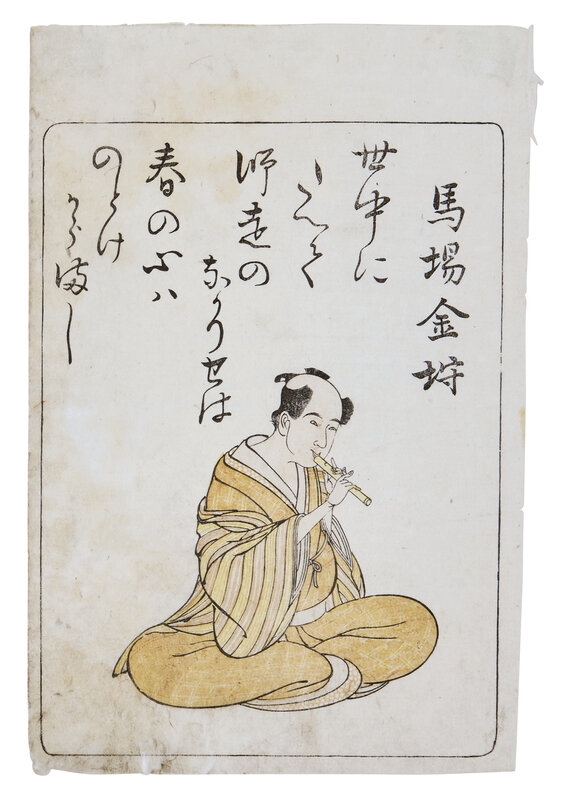 馬場金埒
世中に
たえて
師走の
なかりせは
春の心ハ
のとけ
からまし